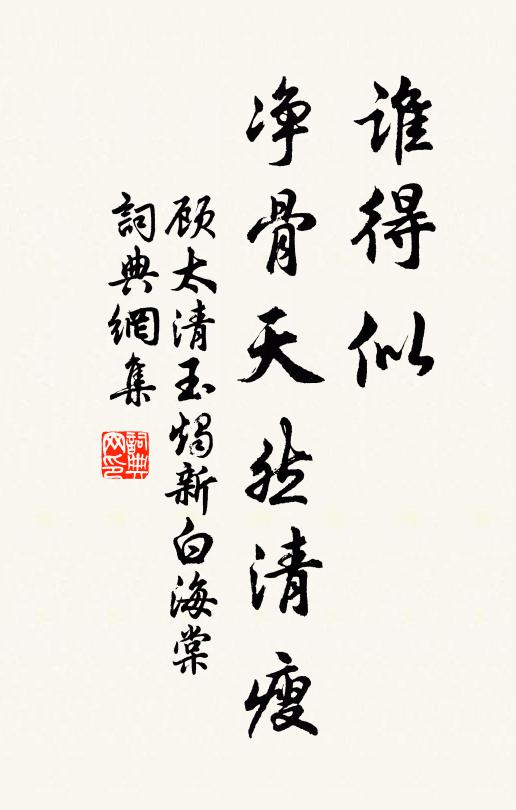 誰得似
净骨天然清瘦
顾太清玉燭新白海棠
詞典網集
詞典網印